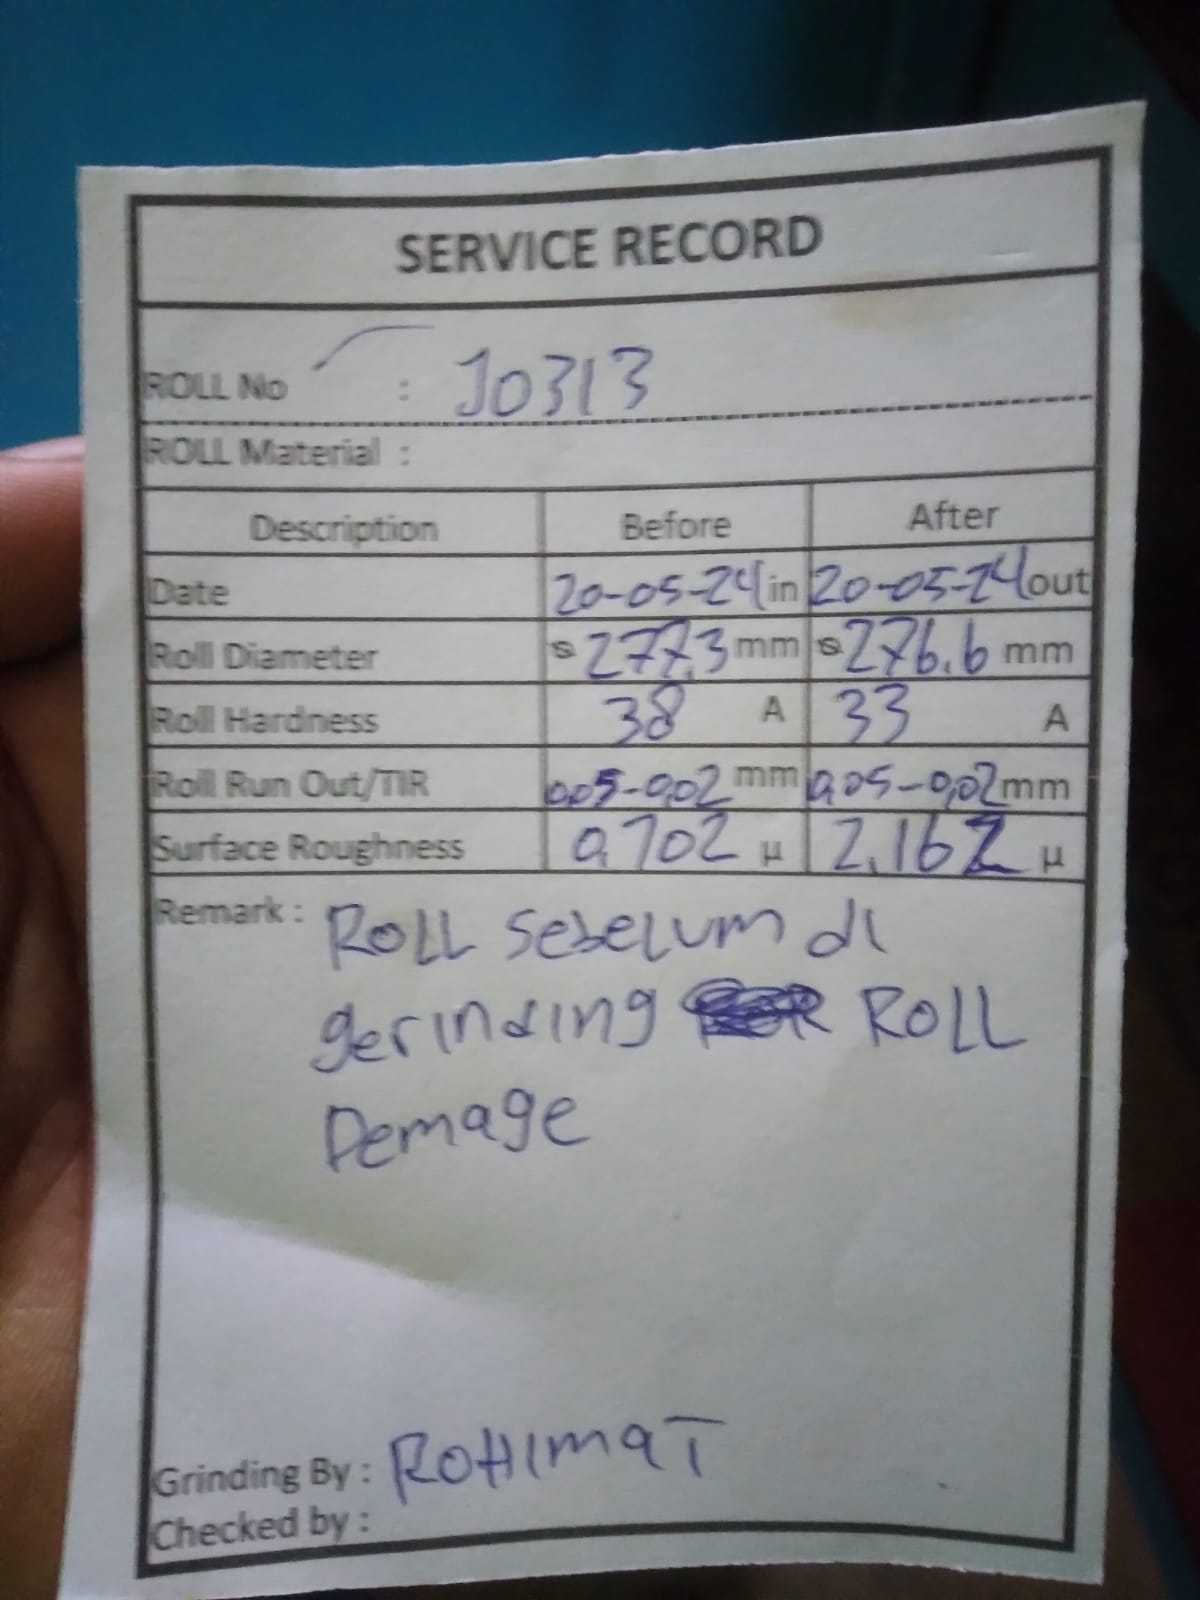 SERVICE RECORD
ROLL No : J0313
ROLL Material :
Description Before After
Date 20-05-24 in 20-05-24 out
Roll Diameter ⌀ 277,3 mm ⌀ 276.6 mm
Roll Hardness 38 A 33 A
Roll Run Out/TIR 0,05-0,02 mm 0,05-0,02 mm
Surface Roughness 0,702 µ 2,162 µ
Remark : ROLL sebelum di
gerinding ROLL
Demage
Grinding By : ROHIMAT
Checked by :